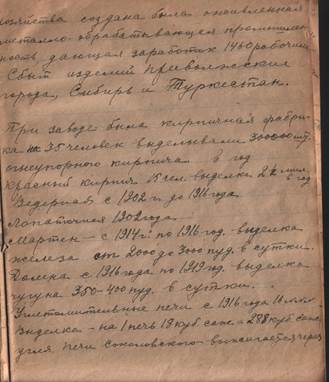 хозяйства создана была оживленная
металло-обрабатывающая промышлен-
ность, дающая заработок 1460 рабочим
Сбыт изделий приволжских
города, Сибирь и Туркестан.
При заводе была кирпичная фабри-
ка 35 человек выделывали 300000 шт.
огнеупорного кирпича в год
красный кирпич 15 сел. выделка 2 в год
Ведерная с 1902 г. до 1916 года
Лопаточная 1902 года.
Мартен – с 1914 г. по 1916 год. выделка
железа от 2000 до 3000 пуд. в сутки.
Домна с 1916 года по 1919 год. выделка
чугуна 350-400 пуд. в сутки.
печи с 1916 года 10
Выделка – на 1 печь 18 куб саж. – 288 куб саж
угля печи соколовского – выжигается через